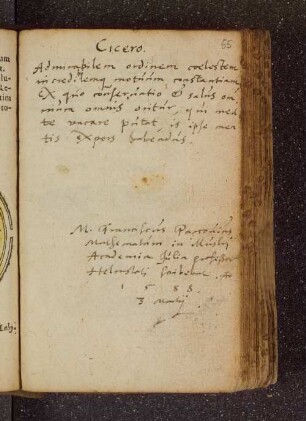 55
Cicero.
Admirabilem ordinem coelestem
incredilemq motuum constantiam
Ex quo conservatio & salus om
nium omnis oritur, qui men
te vacare putat, is ipse men
tis expers habendus.
M. Franciscus Parcovius
Mathematum in Illustri
Academia Julia professor
Helmsteti
1 5 8 8
3 Maij